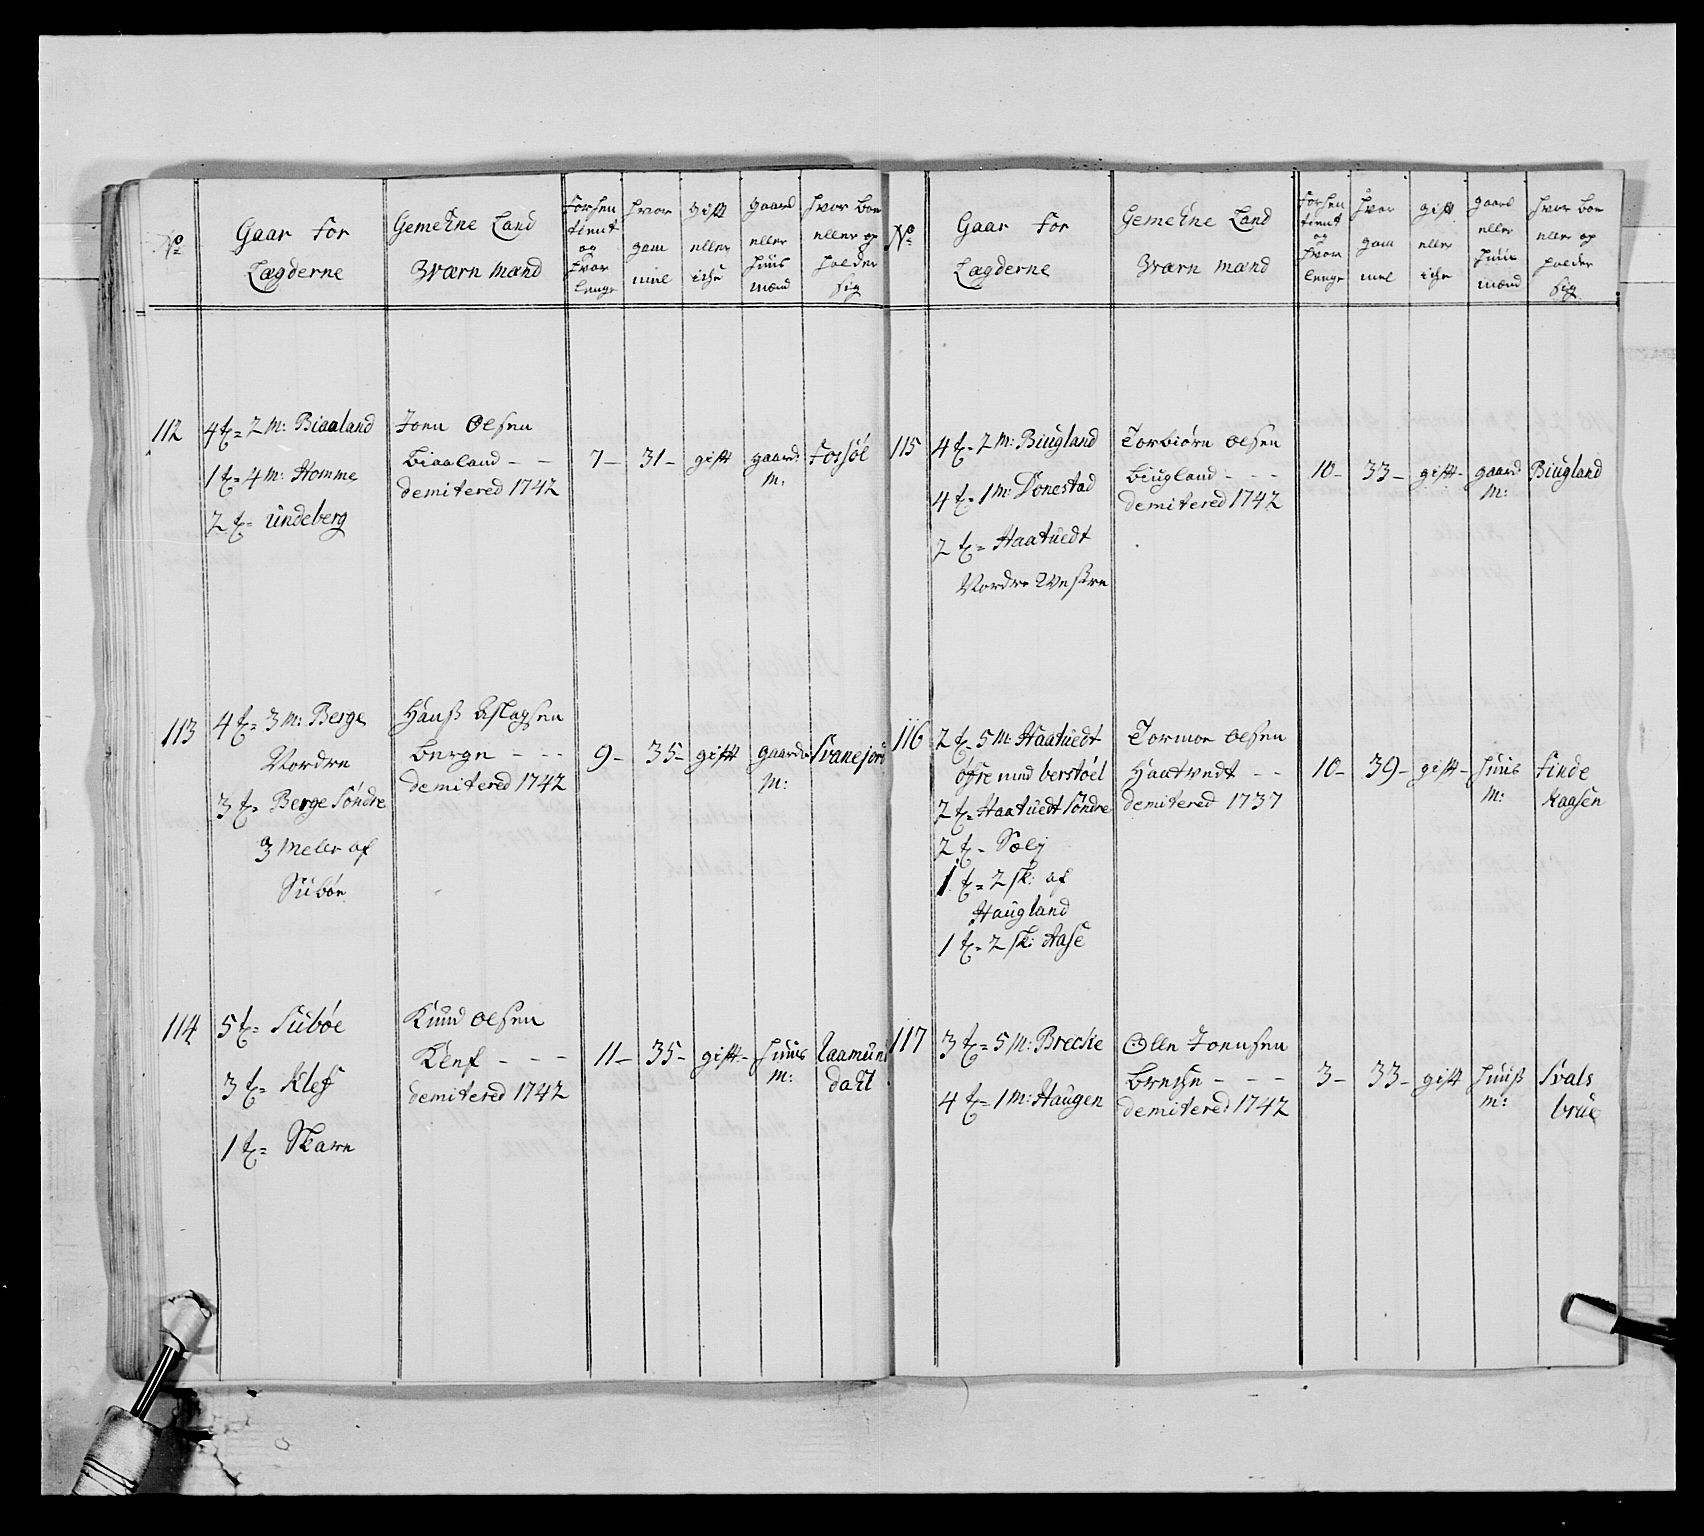 No
Gaar for
Lægderne
Gemehne Land
Wærn mænd
forhen
tient
og
hvor
lenge
hvor
gam
mel
gift
eller
iche
gaard
eller
huus
mænd
hvor boe
eller op
holder
sig
112
4 t= 2 m: Biaaland
1 t= 4 m: Homme
2 t= undeberg
Joen Olsen
Biaaland - -
demitered 1742
7-
31-
gift
gaards
m:
fossøe
113
4 t= 3 m: Berge
Nordre
3 t= Berge Søndre
3 Meler af
Sübøe
Hanß Aslagsen
Berge - - -
demitered 1742
9-
35-
gift
gaards
m:
Svanejord
114
5 t= Sübøe
3 t= Klef
1 t= Skaren
Knud Olsen
Klef - - -
demitered 1742
11-
35-
gift-
huus
m:
Raamuns
dahl
No
Gaar for
Lægderne
Gemehne Land
Wærn mænd
forhen
tient
og
hvor
lenge
hvor
gam
mel
gift
eller
iche
gaard
eller
huus
mænd
hvor boe
eller op
holder
sig
115
4 t= 2 m: Biugland
4 t= 1 m: Donestad
2 t= Haatuedt
Nordre Westre
Torbiørn Olsen
Biugland - - -
demitered 1742
10-
33-
gift-
gaard
m:
Biugland
116
2 t= 5 m: Haatuedt
øfre med berstøel
2 t= Haatuedt Søndre
2 t= Sælj
1 t= 2 sk: af
Haugland
1 t= 2 sk: Aase
Tormoe Olsen
Haatvedt - -
demitered 1737
10-
39-
gift-
huus
m:
finde
Aagsen
117
3 t= 5 m: Brecke
4 t= 1 m: Haugen
Olle Joensen
Breche - - -
demitered 1742
3-
33-
gift
huuß
m:
Svals
brue